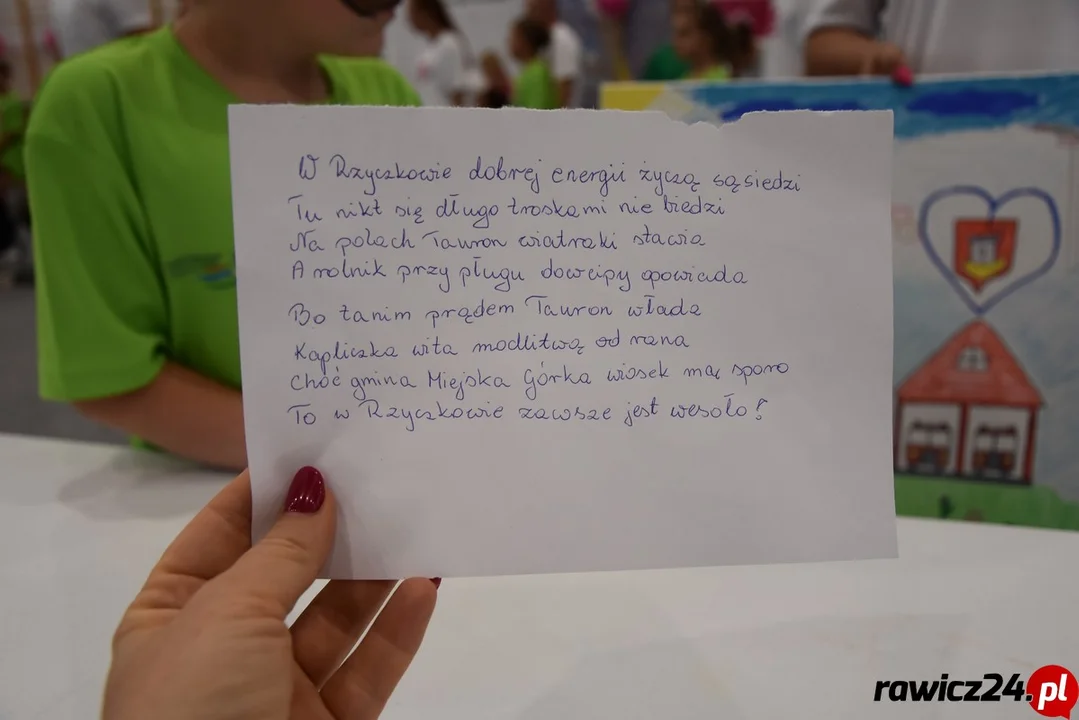 W Rzyczkowie dobrej energii życzą sąsiedzi
Tu nikt się długo troskami nie biedzi
Na polach Tauron wiatraki stawia
A rolnik przy pługu dowcipy opowiada
Bo tanim prądem Tauron włada
Kapliczka wita modlitwą od rana
Choć gmina Miejska Górka wiosek ma sporo
To w Rzyczkowie zawsze jest wesoło!
rawicz24.pl